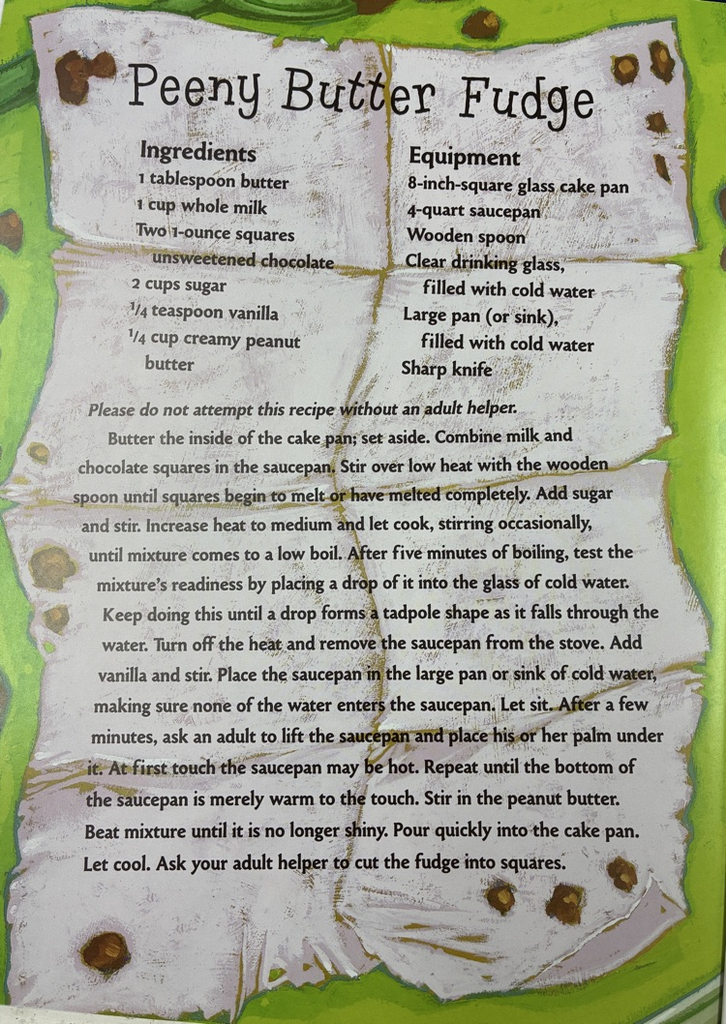 Peeny Butter Fudge
Ingredients
1 tablespoon butter
1 cup whole milk
Two 1-ounce squares
unsweetened chocolate
2 cups sugar
1/4 teaspoon vanilla
1/4 cup creamy peanut
butter
Equipment
8-inch-square glass cake pan
4-quart saucepan
Wooden spoon
Clear drinking glass,
filled with cold water
Large pan (or sink),
filled with cold water
Sharp knife
Please do not attempt this recipe without an adult helper.
Butter the inside of the cake pan; set aside. Combine milk and
chocolate squares in the saucepan. Stir over low heat with the wooden
spoon until squares begin to melt or have melted completely. Add sugar
and stir. Increase heat to medium and let cook, stirring occasionally,
until mixture comes to a low boil. After five minutes of boiling, test the
mixture's readiness by placing a drop of it into the glass of cold water.
Keep doing this until a drop forms a tadpole shape as it falls through the
water. Turn off the heat and remove the saucepan from the stove. Add
vanilla and stir. Place the saucepan in the large pan or sink of cold water,
making sure none of the water enters the saucepan. Let sit. After a few
minutes, ask an adult to lift the saucepan and place his or her palm under
it. At first touch the saucepan may be hot. Repeat until the bottom of
the saucepan is merely warm to the touch. Stir in the peanut butter.
Beat mixture until it is no longer shiny. Pour quickly into the cake pan.
Let cool. Ask your adult helper to cut the fudge into squares.